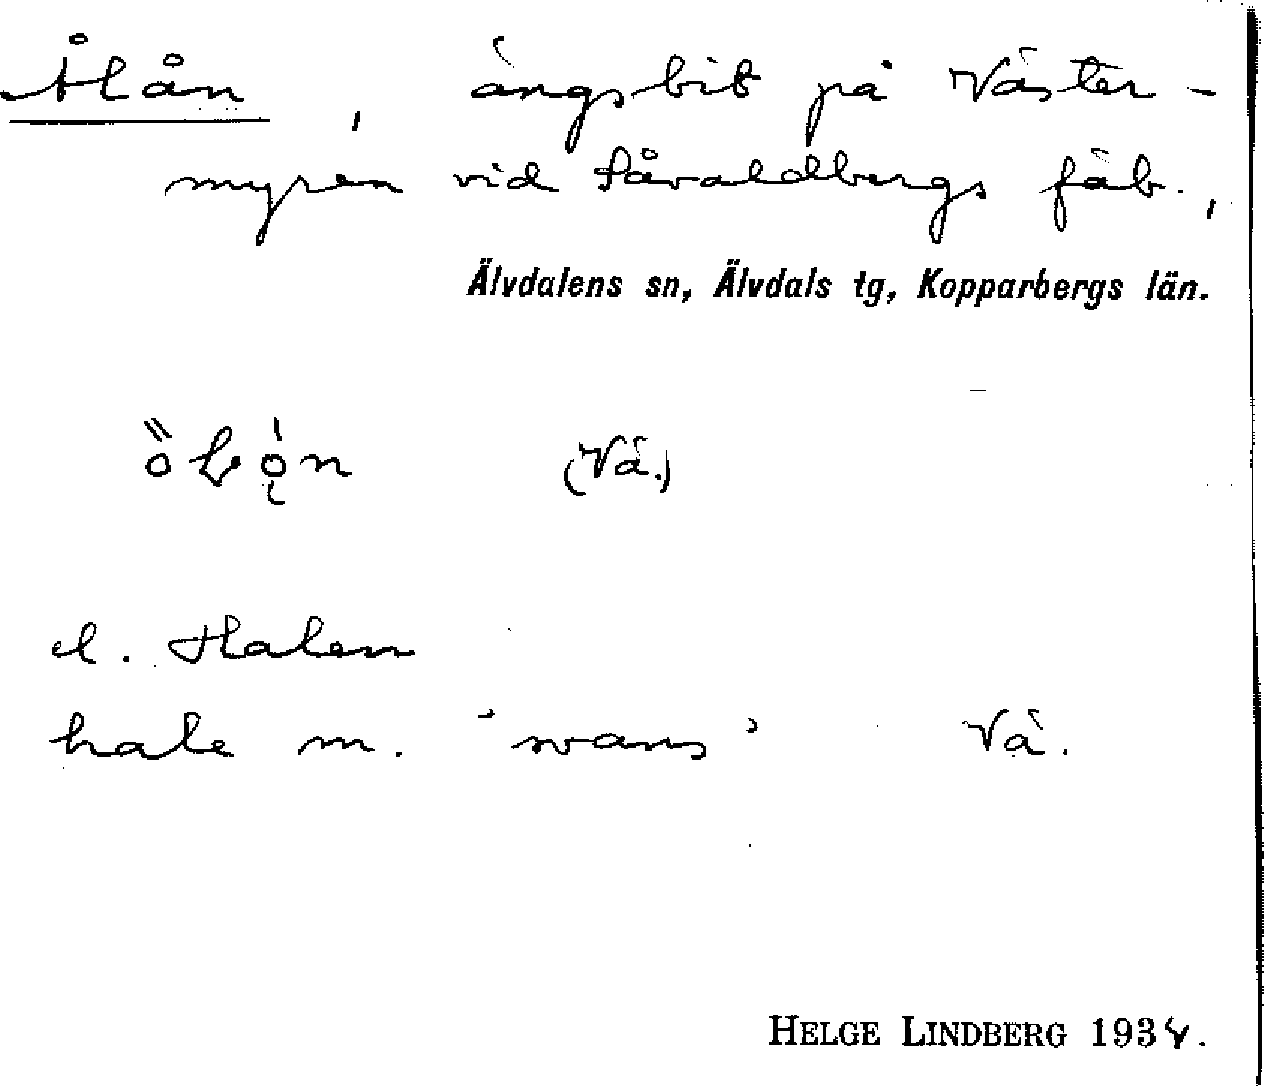 Ålån, ängsbit på Väster-
myren vid Såvaldbergs fäb.,
Älvdalens sn, Älvdals tg, Kopparbergs län.
(Vä.)
d. Halen
hale m. 'svans' Vä.
HELGE LINDBERG 1934.